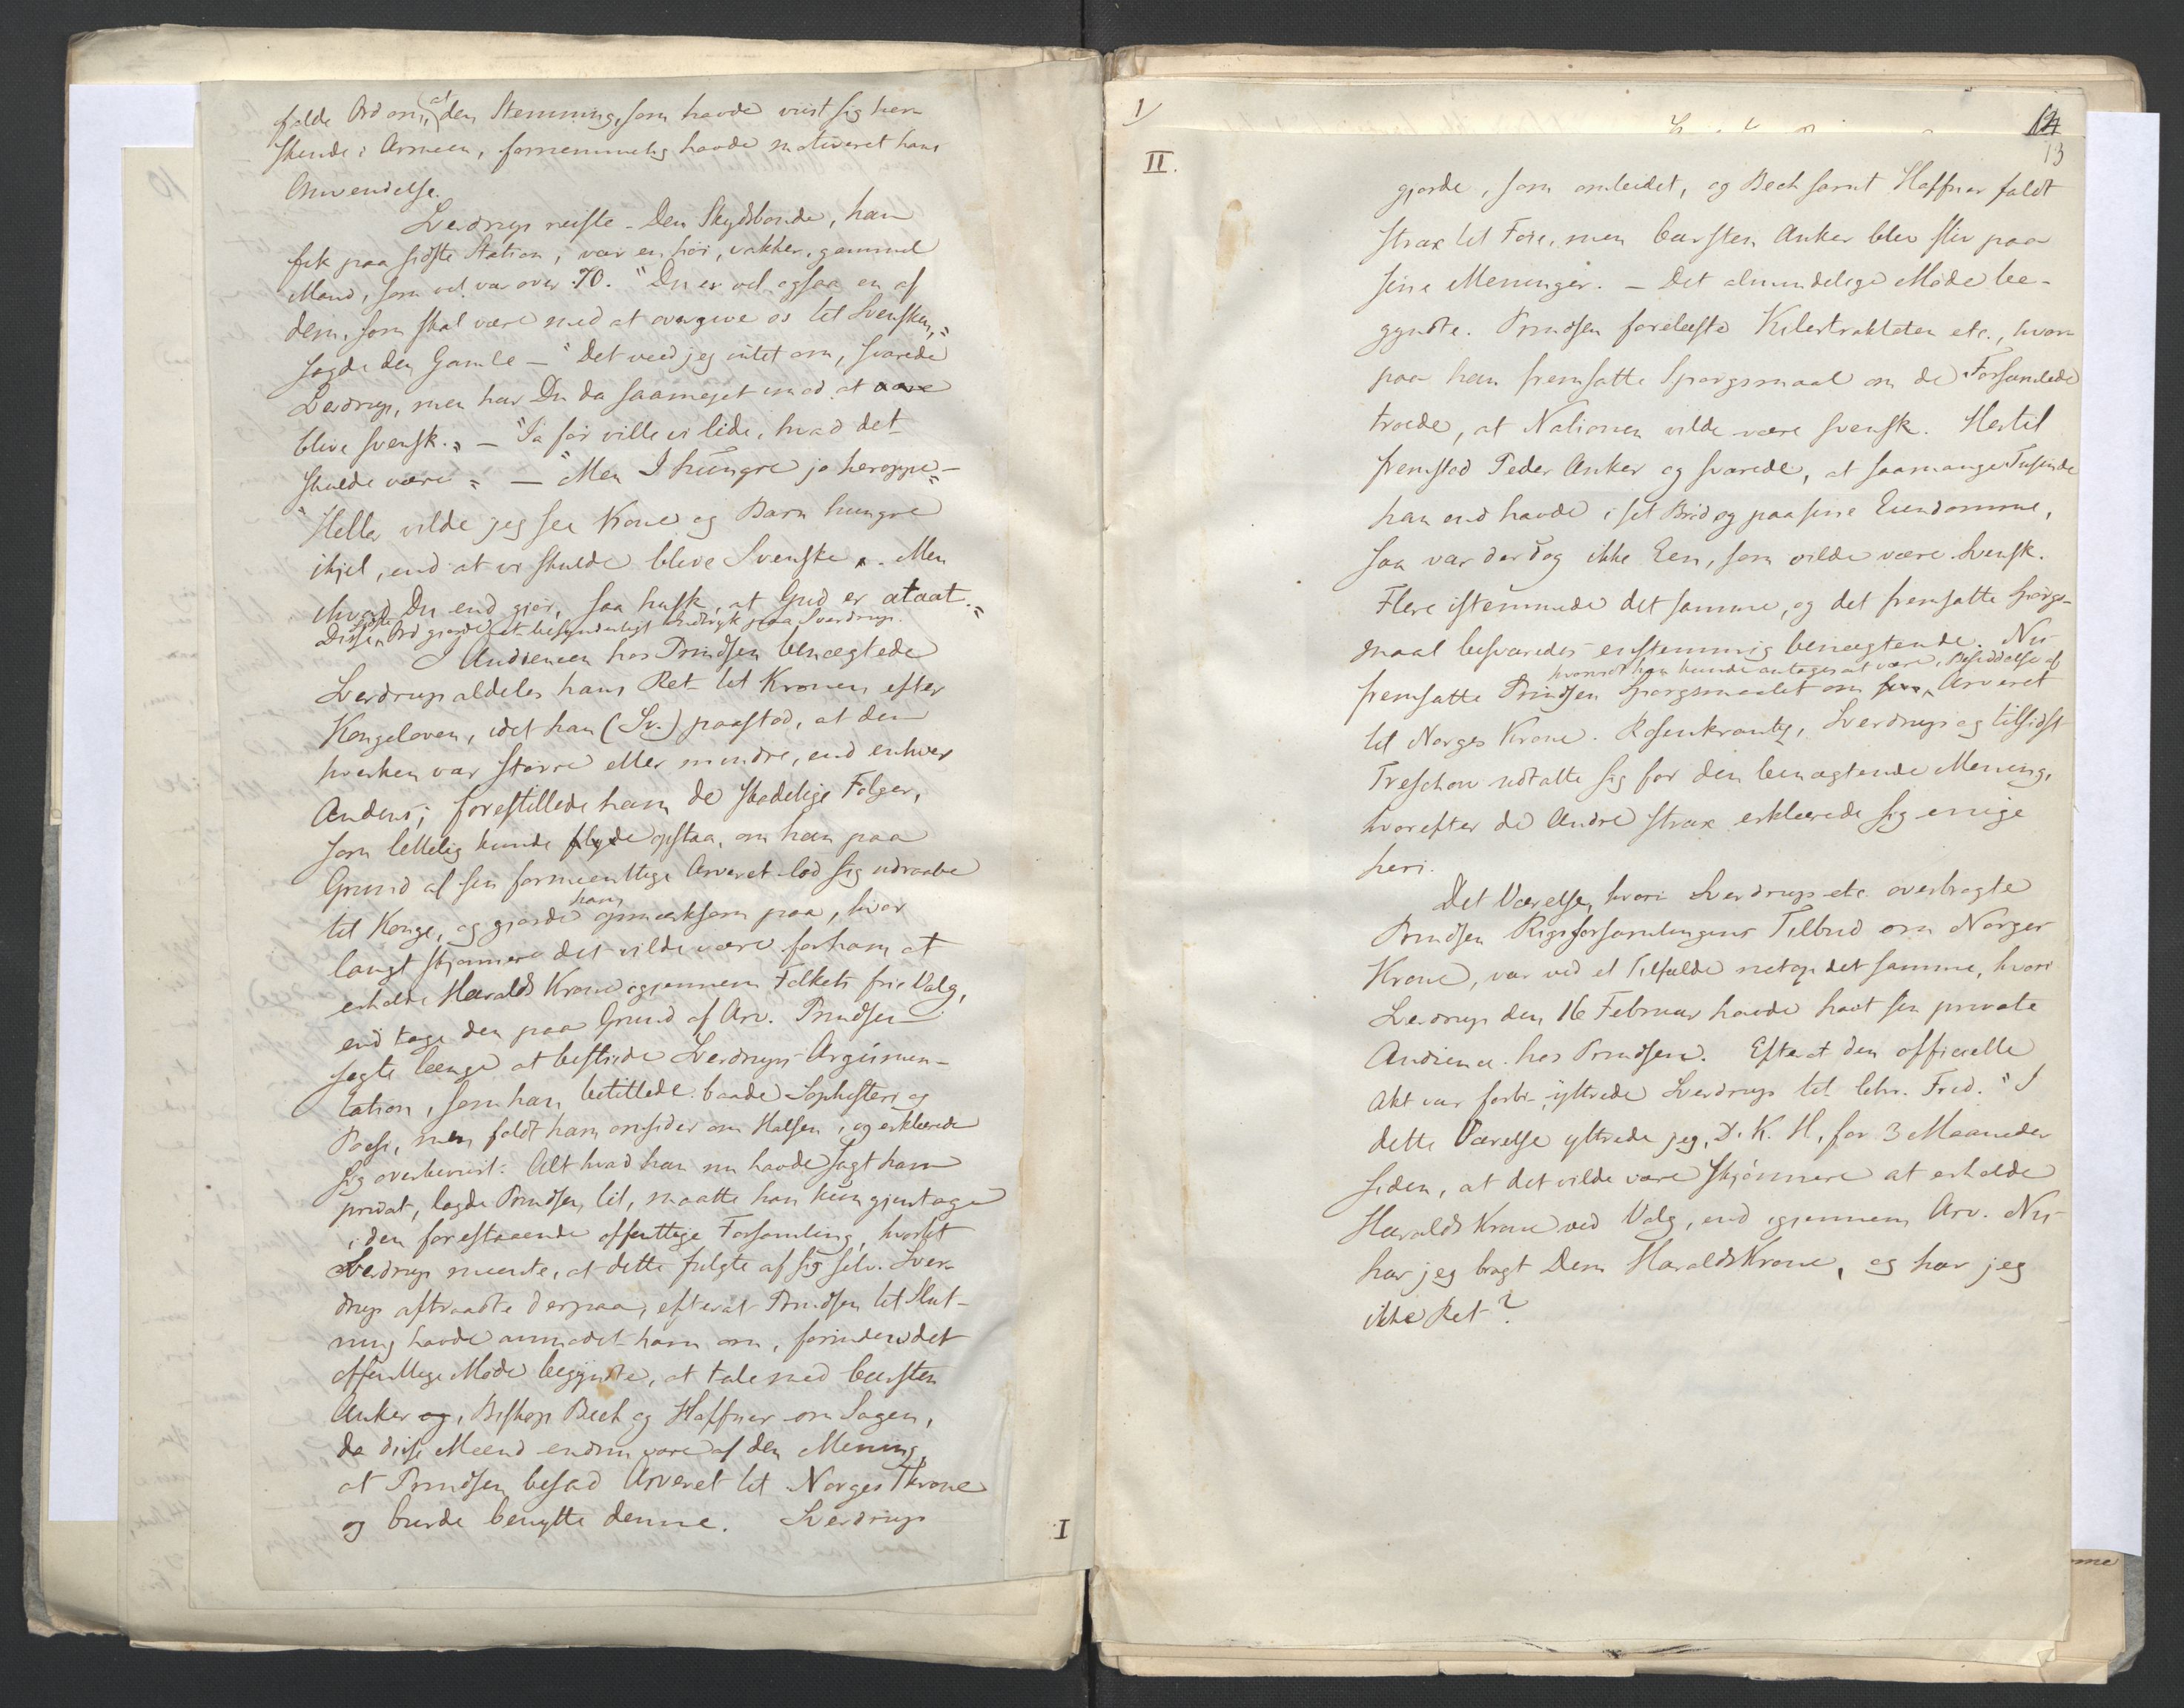 falde Ord om, at den Stemning, som havde viist sig her-
skende i Armeen, fornemmelig havde motiveret hans
Anvendelse.
Sverdrup reiste. Den Skydsbonde, han
fik paa sidste Station, var en høi, vakker, gammel
Mand, som vel var over 70. "Du er vel ogsaa en af
dem, som skal være med at overgive os til Svensken,"
sagde den Gamle — "Det veed jeg intet om, svarede
Sverdrup, men har Du da saameget imod at være
blive svensk." — "Ja før ville vi lide, hvad det
skulde være" — "Men I hungre jo heroppe —"
"Heller vilde jeg see Kone og Barn hungre
ihjel, end at vi skulde blive Svenske. Men
hvad Du end gjør, saa husk, at Gud er ataat."
Disse sidste Ord gjorde et besynderligt Indtryk paa Sverdrup.
I Audiencen hos Prindsen benægtede
Sverdrup aldeles hans Ret til Kronen efter
Kongeloven, idet han (Sv.) paastod, at den
hverken var større eller mindre, end enhver
Andens; forestillede ham de skadelige Følger,
som lettelig kunde flyde opstaa, om han paa
Grund af sin formeentlige Arveret lod sig udraabe
til Konge, og gjorde ham opmærksom paa, hvor
langt skjønnere det vilde være for ham at
erholde Haralds Krone igjennem Folkets frie Valg,
end tage den paa Grund af Arv. Prindsen
søgte længe at bestride Sverdrups Argumen-
tation, som han betitlede baade Sophisteri og
Poesi, men faldt ham omsider om Halsen, og erklærede
sig overbeviist. Alt hvad han nu havde sagt ham
privat, lagde Prindsen til, maatte han kun gjentage
i den forestaaende offentlige Forsamling, hvortil
Sverdrup meente, at dette fulgte af sig selv. Sver-
drup aftraadte derpaa, efterat Prindsen til Slut-
ning havde anmodet ham om, forinden det
offentlige Møde begyndte, at tale med Carsten
Anker og, Biskop Bech og Haffner om Sagen,
da disse Mænd endnu vare af den Mening,
at Prindsen besad Arveret til Norges Throne
og burde benytte denne. Sverdrup
I
1
12
13
II.
gjorde, som anledet, og Bech samt Haffner faldt
strax til Føie, men Carsten Anker blev stiv paa
sine Meninger. — Det almindelige Møde be-
gyndte. Prindsen forelæste Kielertraktaten etc., hvor-
paa han fremsatte Spørgsmaal om de Forsamlede
troede, at Nationen vilde være svensk. Hertil
fremstod Peder Anker og svarede, at saamange Tusinde
han end havde i sit Brød og paa sine Eiendomme,
saa var der dog ikke Een, som vilde være Svensk.
Flere istemmede det samme, og det fremsatte Spørgs-
maal besvaredes enstemmig benægtende. Nu
hvorvidt han kunde antages at være i Besiddelse af
fremsatte Prindsen Spørgsmaalet om sin Arveret
til Norges Krone. Rosenkrantz, Sverdrup og tilsidst
Treschow udtalte sig for den benægtende Mening,
hvorefter de Andre strax erklærede sig enige
heri.
Det Værelse, hvori Sverdrup etc. overbragte
Prindsen Rigsforsamlingens Tilbud om Norges
Krone, var ved et Tilfælde netop det samme, hvori
Sverdrup den 16 Februar havde havt sin private
Audience hos Prindsen. Efterat den officielle
Akt var forbi, yttrede Sverdrup til Chr. Fred. "I
dette Værelse yttrede jeg, D. K. H, for 3 Maaneder
siden, at det vilde være skjønnere at erholde
Haralds Krone ved Valg, end igjennem Arv. Nu
har jeg bragt Dem Haralds Krone, og har jeg
ikke Ret?